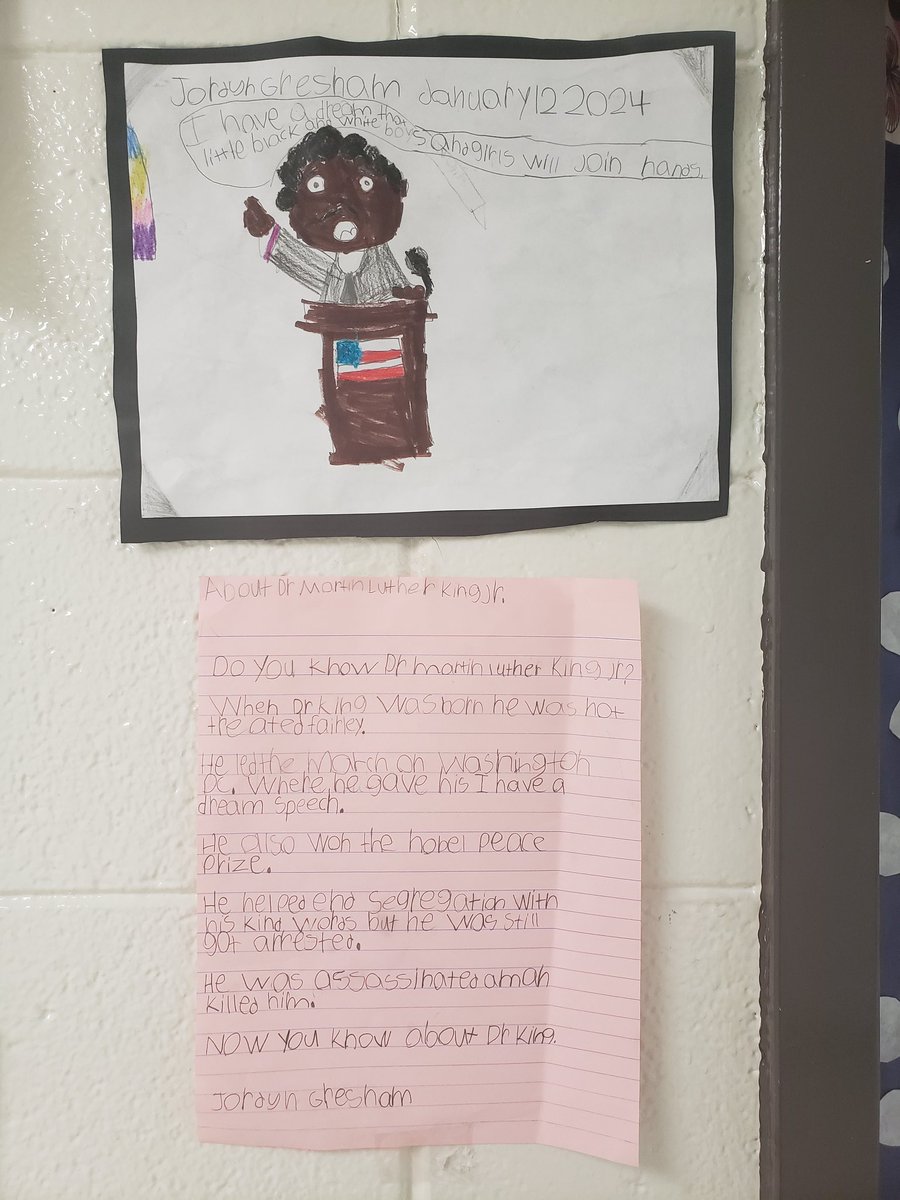 Jordyn Gresham January 12 2024
I have a dream that
little black and white boys and girls will join hands.
About Dr Martin Luther King Jr.
Do you know Dr martin luther King Jr?
When Dr King was born he was not
the ated fairley.
He led the March on Washington
DC. Where he gave his I have a
dream speech.
He also won the nobel peace
prize.
He helped end segregation with
his kind words but he was still
got arrested.
He was assassinated a man
killed him.
Now you know about Dr King.
Jordyn Gresham